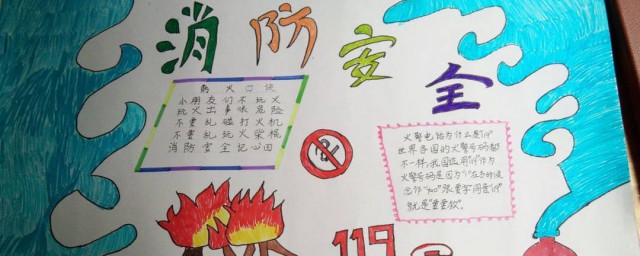 消防安全
防火口诀
小朋友们不玩火
玩火出事很危险
不要乱碰打火机
不要乱玩火柴棍
消防安全记心田
火警电话为什么是119
世界各国的火警号码都
不一样，我国应用119作为
火警号码是因为"1"在古时候
念作"yao"跟"要"字同音"119"
就是"要要救"。
119